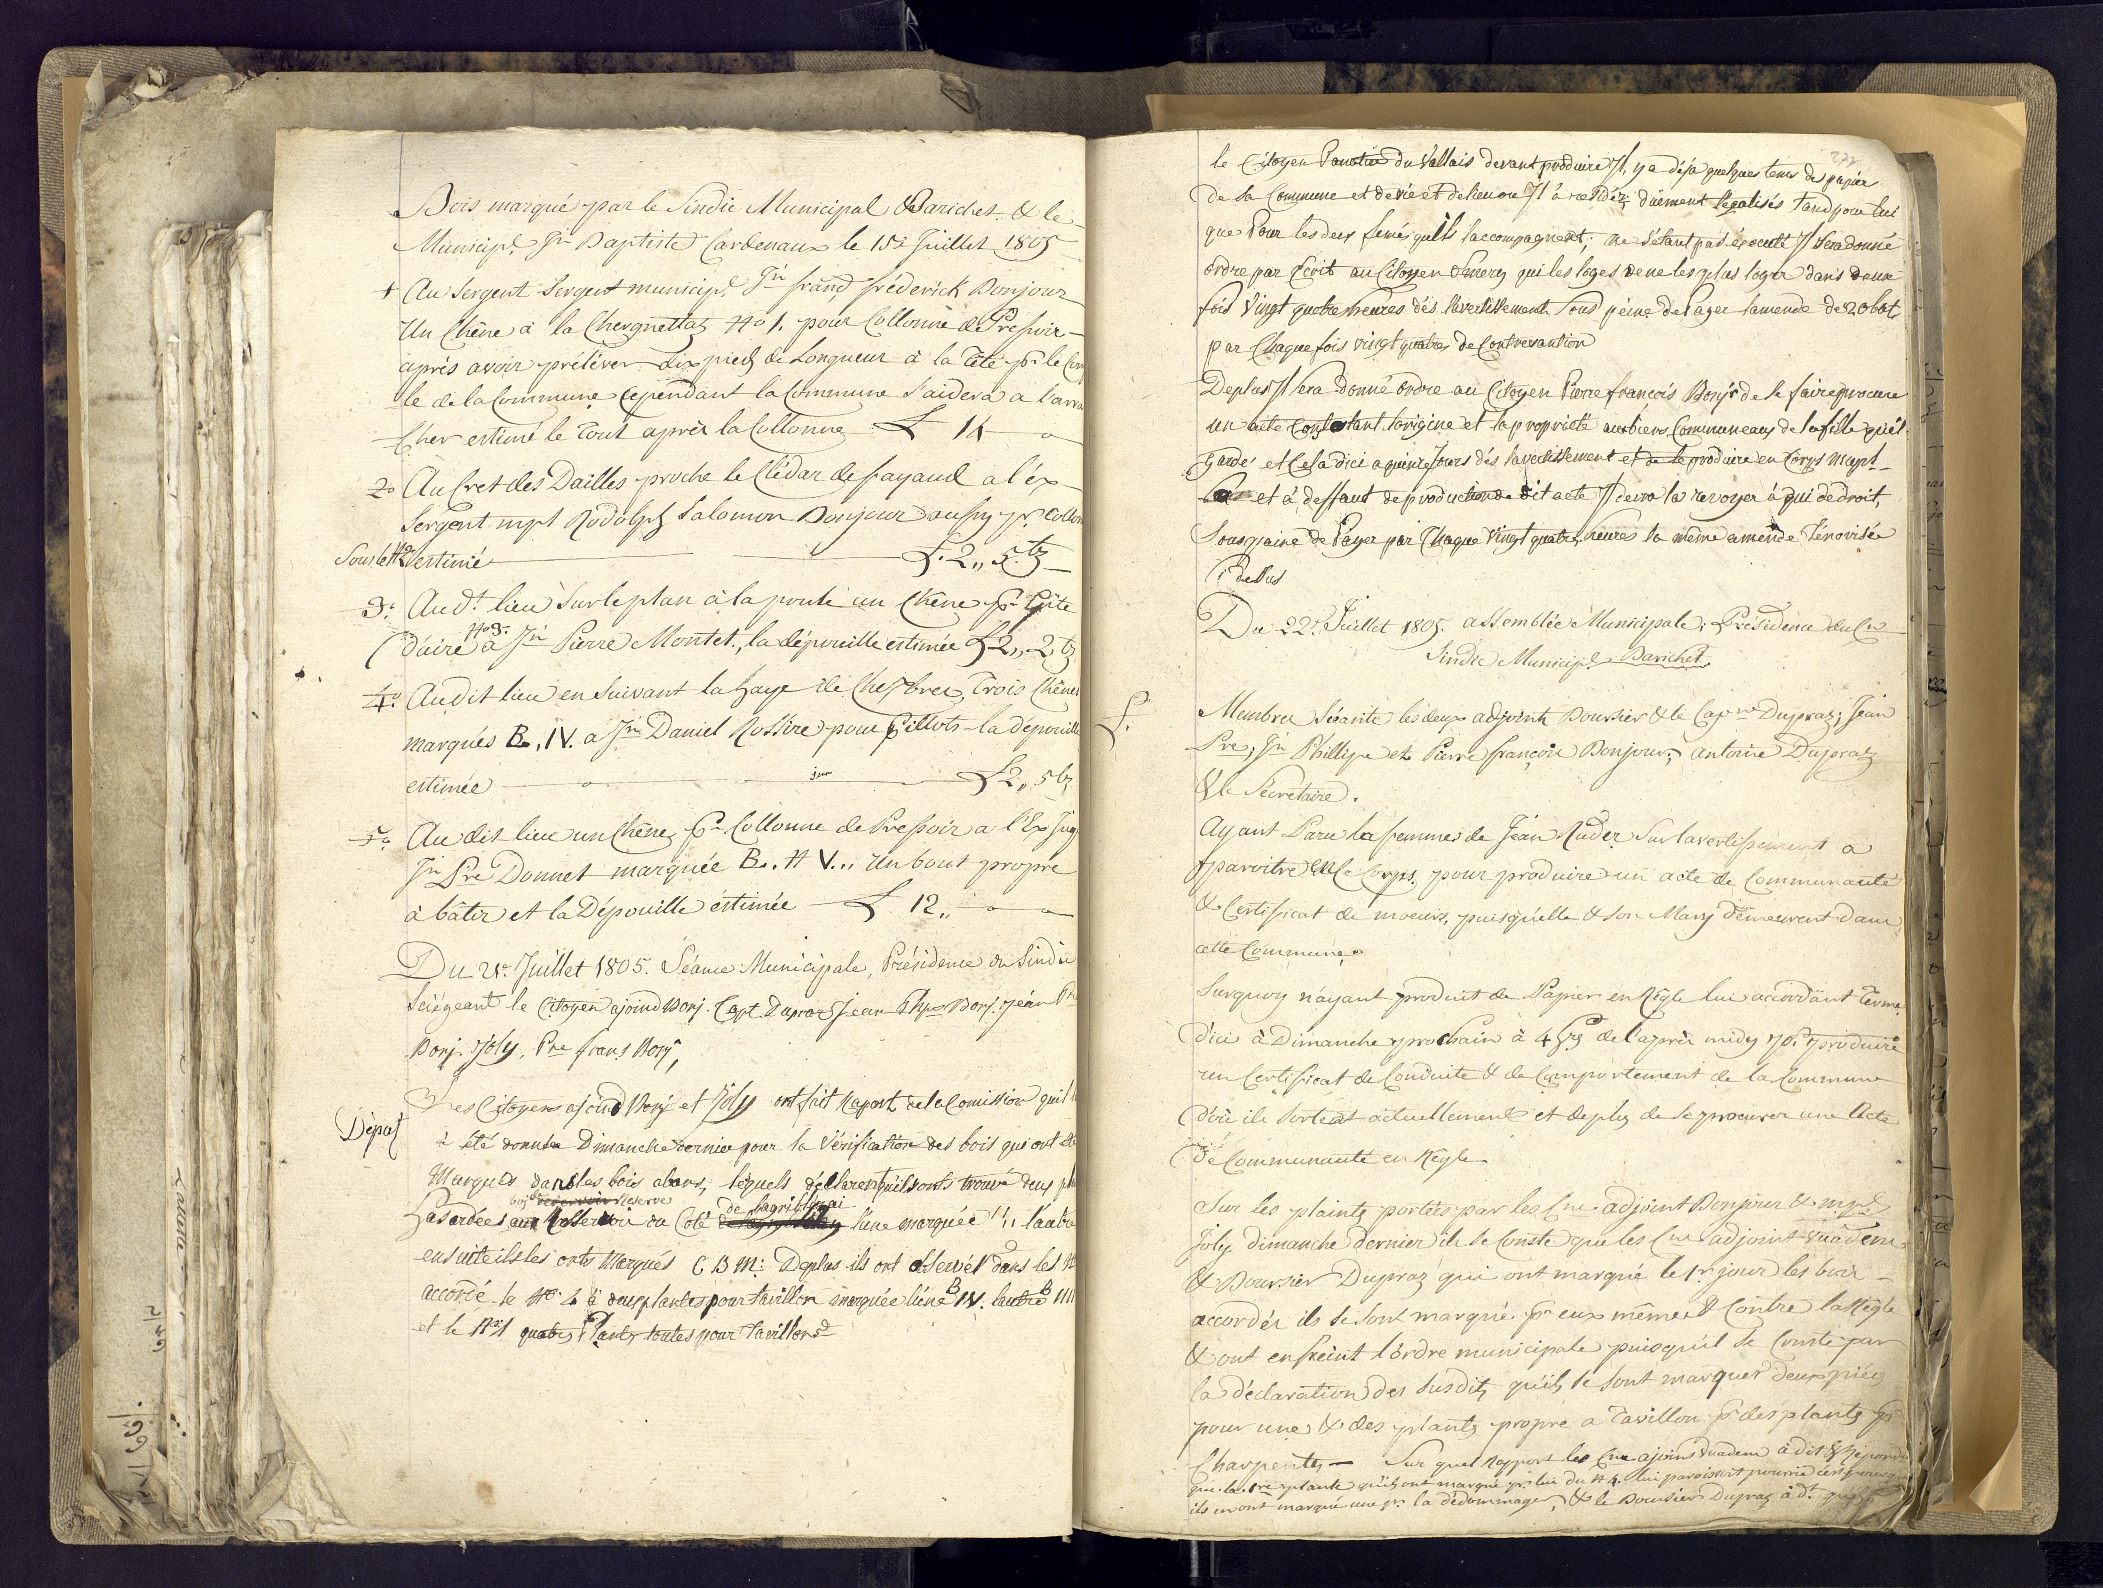 Bois marqué par le Sindic Municipal Barichet. & le
Municipl Jn Baptiste Cardenaux le 15e Juillet 1805
1 Au Sergent Sergent municipl Jn frand fréderick Bonjour
Un Chêne à la Chergnettaz No 1. pour Collonne de Pressoir
après avoir préléver dix pieds de Longueur à la Tête pr. le Com
le de la Commune Cependant la Commune Saidera a l'arra
Cher estimé le Tout après la Collonne £ 14
2o Au Cret des Dailles proche le Clédar de fayaud a l'éx
Sergent mpl Rodolph Salomon Bonjour aussy pr. Collon
Sous le No 2 estimé £. 2,, 5 bz
3o Au dt. lieu Sur le plan à la poute un Chêne pr Gite
No 3.
d'aire à Jn Pierre Montet, la dépouille estimée £ 2,, 2 bz
4o Au dit lieu en Suivant la haye de Chesbrex Trois Chênes
marqués B., IV. a Jn Daniel Rossire pour Billots la dépouille
estimée £ 2,, 5 bz
5o Au dit lieu un Chêne, pr Collonne de Pressoir a l'Ex Jug
Jn Pre Donnet marquée B. H V.,, Un bout propre
à bâtir et la Dépouille éstimée £ 12,,
Du 21e Juillet 1805. Séance Municipale, Présidence du Sindic
Seiégeant le Citoyen ajoind Bonj. Capt. Dupraz Jean Phpe Bonj. Jéan Pre
Bonj. Joly, Pre frans Bonjr,
Les Citoyens ajoind Bonjr et Joly ont fait Raport de la Comission quil
Dépot
à été donnée Dimanche dernier pour la Vérification des bois qui ont été
Marqués dans les bois abans, léquels déclarent quils onts trouvé deux pla
bois Reserve
de lagrillyrai
hasardées aux Reservoir du Coté l'une marquée l'autre
ensuite ils les onts Marqués C B M: Deplus ils ont observér dans les No
accordé le No 4 à deux plantes pour tavillon marquée l'une B IV. lautre B IIII
et le No 1 quatre Plants toutes pour Tavillons
le Citoyen du Vallais devant produire Jl y a déja quelques tems des papiers
de sa Commune et de vie et de lieu ou Jl à resider duement légalisés tand pour lui
que Pour les deux feme quils laccompagnent, ne sétant pas éxecuté Jl sera donné
ordre par Ecrit au Citoyen Emery qui les loges de ne les plus loger dans deux
fois Vingt quatre heures dés lavertissement Sous peine de Payer lamende de 20 bat
par Chaque fois vingt quatres de Contrevantion
Deplus Jl sera donné ordre au Citoyen Pierre francois Bonjr de se faire procurer
un acte Constatant lorigine et la proprieté aux biens Communeaux de la fille quil
Garde et Cela dici a quinze Jours dés lavertissement et de le produire en Corps mupl
et à deffaut de production de dit acte Jl devra la revoyer à qui de droit,
Sous paine de Payer par Chaque Vingt quatre heures la même amende Ténorisée
Ci dessus
Du 22e Juillet 1805. assemblée Municipale; Présidence du Cn
Sindic Municipl Barichet,
Membres Séante les deux adjoint Boursier & le Capne Dupraz; Jean
Pre; Jn Phillipe et Pierre françois Bonjour; antoine Dupraz
& le Secretaire.
Ayant Paru la femme de Jéan Ruder Sur lavertissement a
paroitre en Ce Corps, pour produire un acte de Communauté
& Certificat de moeurs, puisquélle & son Mary demeurent dans
cette Commune.
Surquoy n'ayant produit de Papier en Règle lui accordant Terme
d'ici à Dimanche prochain à 4 hrs de l'aprés midy pr. produire
un Certificat de Conduite & de Comportement de la Commune
d'où ils Sortent actuellement et de plus de se procurer une Acte
de Communauté en Règle.
Sur les plaints portées par les Cns adjoint Bonjour & mpl
Joly dimanche dernier il se Conste que les Cns adjoint Vuadens
& Boursier Dupraz qui ont marqué le 1er jour les bois
accordér ils se sont marqué pr eux même & Contre la Règle
& ont enfreint l'ordre municipale puisqu'il se Conste par
la déclaration des susdits, qu'ils se sont marquer deux pièces
pour une & des plants propre a Tavillon pr des plants pr
Charpentes, — Sur quel Rapport les Cns ajoint Vuadens à dit & Répondu
que la 1re plante qu'ils ont marqué pr. lui du No 4. lui paroissoit pourrie
ils en ont marqué une pr. la dédommager, & le Boursier Dupraz à dt.